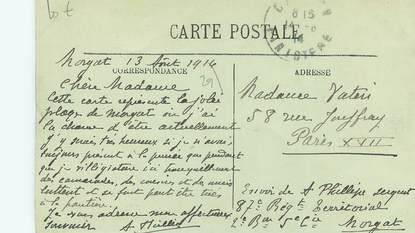 CARTE POSTALE
CORRESPONDANCE
ADRESSE
FINISTERE
Morgat 13 Août 1914
Chère Madame
Cette carte représente la jolie
plage de Morgat où j'ai
la chance d'être actuellement
J'y suis très heureux si je n'avais
toujours présent à la pensée que pendant
que je villégiature ici tranquillement
des camarades, des cousins et des amis
luttent et se font peut être tués
à la frontière.
Je vous adresse mon affectueux
souvenir A Phillipe
Madame Valois
58 rue Jouffroy
Paris XVII
Envoi de A Phillipe sergent
87e Régt Territorial
2e Bon 5e Cie
Morgat